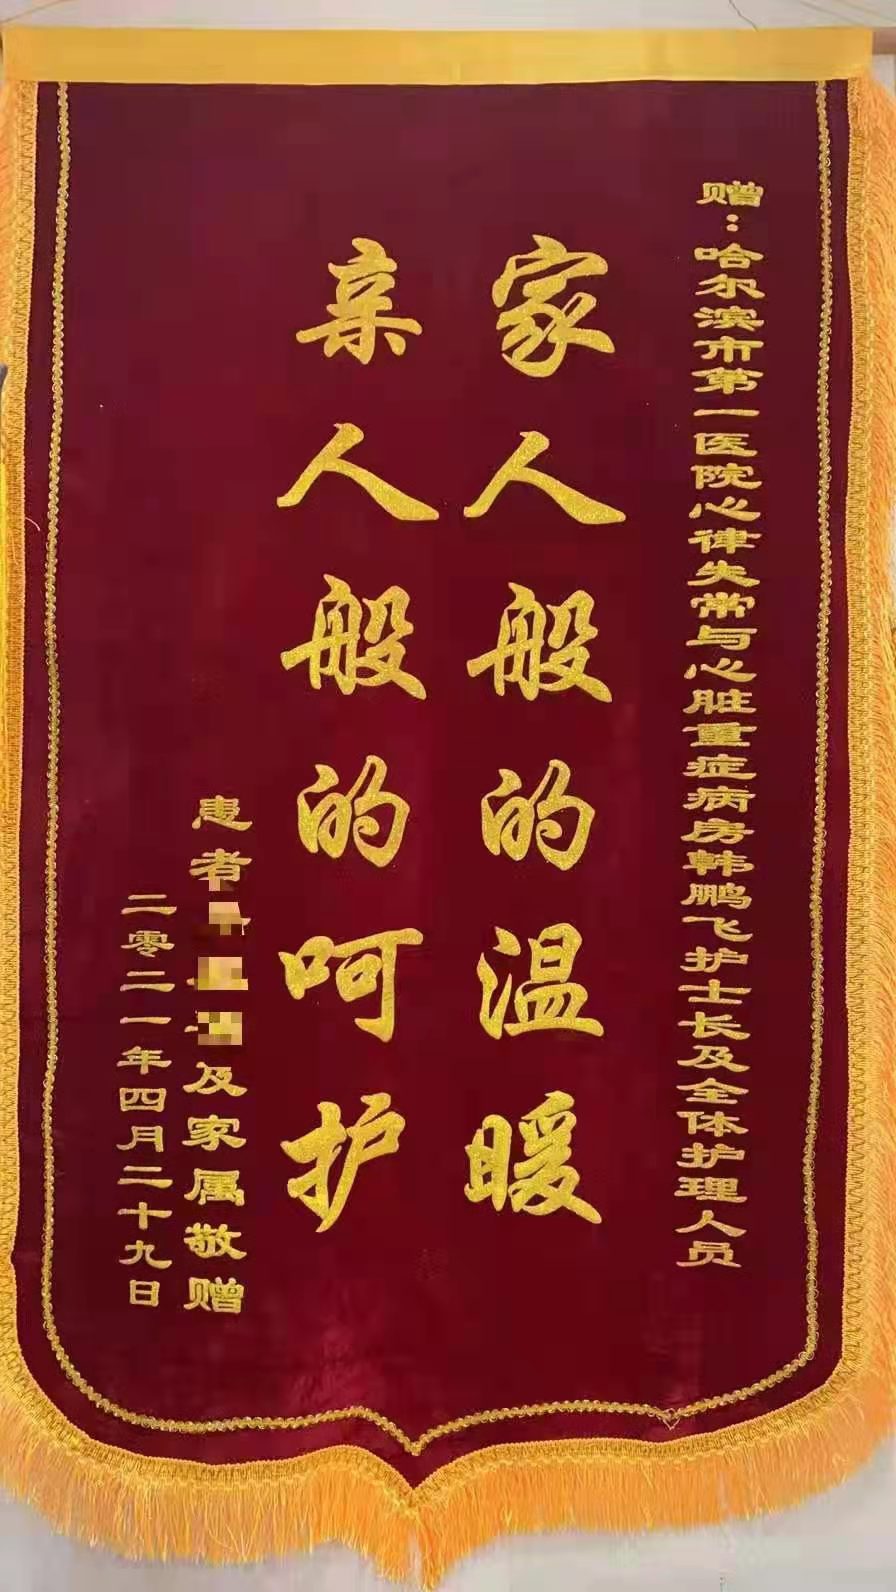 赠：哈尔滨市第一医院心律失常与心脏重症病房韩鹏飞护士长及全体护理人员
家人般的温暖
亲人般的呵护
患者 及家属敬赠
二零二一年四月二十九日